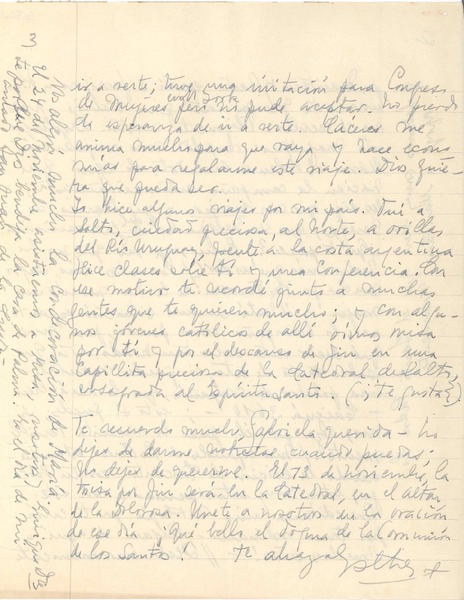 ir a verte; tuve una invitación para Congreso
de Mujeres pero no pude aceptar. No pierdo
la esperanza de ir a verte. Cáceres me
anima mucho para que vaya y hace econo-
mías para regalarme este viaje. Dios quie-
ra que pueda ser.
Yo hice algunos viajes por mi país. Fui a
Salto, ciudad preciosa, al Norte, a orillas
del Río Uruguay, frente a la costa argentina
Hice clases sobre ti y una Conferencia. Con
ese motivo te recordé junto a muchas
gentes que te quieren mucho; y con algu-
nos jóvenes católicos de allí oímos misa
por ti y por el descanso de Jin en una
capillita preciosa de la Catedral de Salto,
consagrada al Espíritu Santo. (¿te gusta?)
Te recuerdo mucho, Gabriela querida - No
dejes de darme noticias cuando puedas;
No dejes de quererme. El 13 de Noviembre, la
misa por Jin será en la Catedral, en el altar
de la Dolorosa. Únete a nosotros en la oración
de ese día ¡Qué bello el dogma de la Comunión
de los Santos! Te abraza Esther
3)
Nos alegró mucho la condecoración de María
El 24 de Noviembre asistiremos a misa,
te Dios bendiga la casa de Palma. Es el día de mi
santo San Juan de la Cruz.